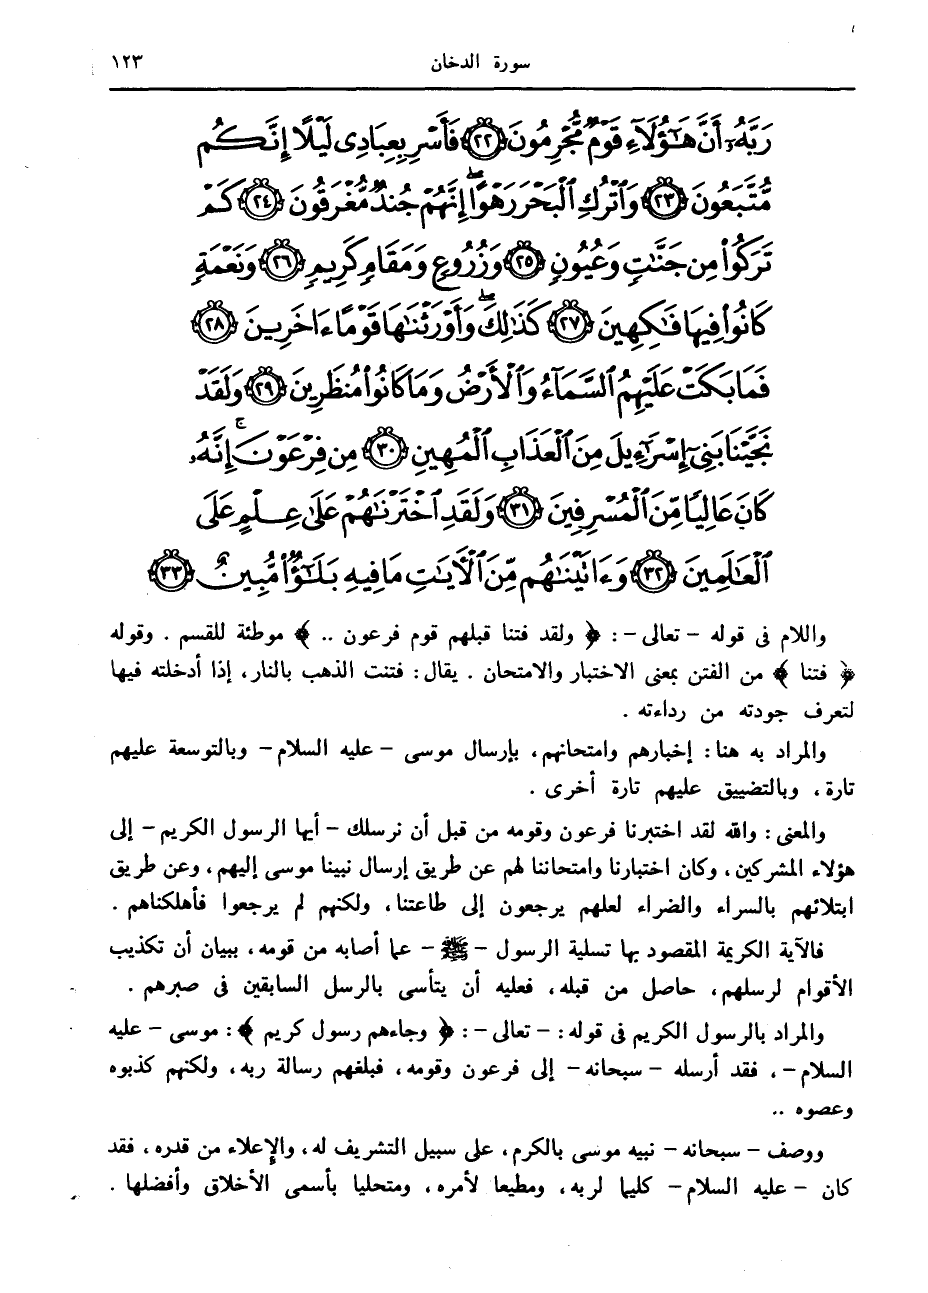 سورة الدخان ١٢٣
رَبَّهُۥٓ أَنَّ هَٰٓؤُلَآءِ قَوْمٌ مُّجْرِمُونَ ﴿٢٢﴾ فَأَسْرِ بِعِبَادِى لَيْلًا إِنَّكُم
مُّتَّبَعُونَ ﴿٢٣﴾ وَٱتْرُكِ ٱلْبَحْرَ رَهْوًا ۖ إِنَّهُمْ جُندٌ مُّغْرَقُونَ ﴿٢٤﴾ كَمْ
تَرَكُوا۟ مِن جَنَّٰتٍ وَعُيُونٍ ﴿٢٥﴾ وَزُرُوعٍ وَمَقَامٍ كَرِيمٍ ﴿٢٦﴾ وَنَعْمَةٍ
كَانُوا۟ فِيهَا فَٰكِهِينَ ﴿٢٧﴾ كَذَٰلِكَ ۖ وَأَوْرَثْنَٰهَا قَوْمًا ءَاخَرِينَ ﴿٢٨﴾
فَمَا بَكَتْ عَلَيْهِمُ ٱلسَّمَآءُ وَٱلْأَرْضُ وَمَا كَانُوا۟ مُنظَرِينَ ﴿٢٩﴾ وَلَقَدْ
نَجَّيْنَا بَنِىٓ إِسْرَٰٓءِيلَ مِنَ ٱلْعَذَابِ ٱلْمُهِينِ ﴿٣٠﴾ مِن فِرْعَوْنَ ۚ إِنَّهُۥ
كَانَ عَالِيًا مِّنَ ٱلْمُسْرِفِينَ ﴿٣١﴾ وَلَقَدِ ٱخْتَرْنَٰهُمْ عَلَىٰ عِلْمٍ عَلَى
ٱلْعَٰلَمِينَ ﴿٣٢﴾ وَءَاتَيْنَٰهُم مِّنَ ٱلْءَايَٰتِ مَا فِيهِ بَلَٰٓؤٌا۟ مُّبِينٌ ﴿٣٣﴾
واللام فى قوله – تعالى –: ﴿ ولقد فتنا قبلهم قوم فرعون .. ﴾ موطئة للقسم . وقوله
﴿ فتنا ﴾ من الفتن بمعنى الاختبار والامتحان . يقال: فتنت الذهب بالنار، إذا أدخلته فيها
لتعرف جودته من رداءته .
والمراد به هنا: إخبارهم وامتحانهم، بإرسال موسى – عليه السلام – وبالتوسعة عليهم
تارة، وبالتضييق عليهم تارة أخرى .
والمعنى: والله لقد اختبرنا فرعون وقومه من قبل أن نرسلك – أيها الرسول الكريم – إلى
هؤلاء المشركين، وكان اختبارنا وامتحاننا لهم عن طريق إرسال نبينا موسى إليهم، وعن طريق
ابتلائهم بالسراء والضراء لعلهم يرجعون إلى طاعتنا، ولكنهم لم يرجعوا فأهلكناهم .
فالآية الكريمة المقصود بها تسلية الرسول – ﷺ – عما أصابه من قومه، ببيان أن تكذيب
الأقوام لرسلهم، حاصل من قبله، فعليه أن يتأسى بالرسل السابقين فى صبرهم .
والمراد بالرسول الكريم فى قوله: – تعالى –: ﴿ وجاءهم رسول كريم ﴾: موسى – عليه
السلام –، فقد أرسله – سبحانه – إلى فرعون وقومه، فبلغهم رسالة ربه، ولكنهم كذبوه
وعصوه ..
ووصف – سبحانه – نبيه موسى بالكرم، على سبيل التشريف له، والإعلاء من قدره، فقد
كان – عليه السلام – كليما لربه، ومطيعا لأمره، ومتحليا بأسمى الأخلاق وأفضلها .